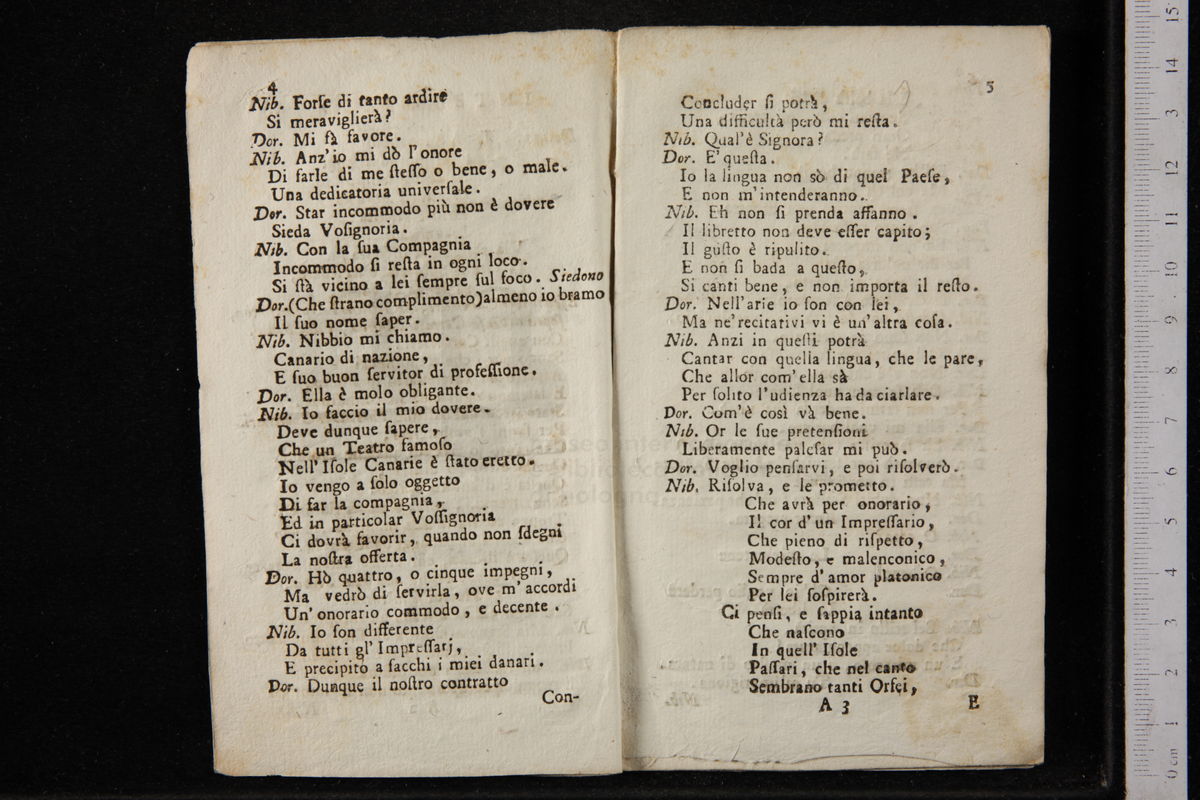 4
Nib. Forſe di tanto ardire
Si meraviglierà?
Dor. Mi fà favore.
Nib. Anz'io mi dò l'onore
Di farle di me ſteſſo o bene, o male.
Una dedicatoria univerſale.
Dor. Star incommodo più non è dovere
Sieda Voſignoria.
Nib. Con la ſua Compagnia
Incommodo ſi reſta in ogni loco.
Si ſtà vicino a lei ſempre ſul foco. Siedono
Dor. (Che ſtrano complimento) almeno io bramo
Il ſuo nome ſaper.
Nib. Nibbio mi chiamo.
Canario di nazione,
E ſuo buon ſervitor di profeſſione.
Dor. Ella è molo obligante.
Nib. Io faccio il mio dovere.
Deve dunque ſapere,
Che un Teatro famoſo
Nell' Iſole Canarie è ſtato eretto.
Io vengo a ſolo oggetto
Di far la compagnia,
Ed in particolar Voſſignoria
Ci dovrà favorir, quando non ſdegni
La noſtra offerta.
Dor. Hò quattro, o cinque impegni,
Ma vedrò di ſervirla, ove m'accordi
Un' onorario commodo, e decente.
Nib. Io ſon differente
Da tutti gl' Impreſſarj,
E precipito a ſacchi i miei danari.
Dor. Dunque il noſtro contratto
Con-
5
Concluder ſi potrà,
Una difficultà però mi reſta.
Nib. Qual'è Signora?
Dor. E' queſta.
Io la lingua non sò di quel Paeſe,
E non m'intenderanno.
Nib. Eh non ſi prenda affanno.
Il libretto non deve eſſer capito;
Il guſto è ripulito.
E non ſi bada a queſto,
Si canti bene, e non importa il reſto.
Dor. Nell'arie io ſon con lei,
Ma ne'recitativi vi è un'altra coſa.
Nib. Anzi in queſti potrà
Cantar con quella lingua, che le pare,
Che allor com' ella sà
Per ſolito l'udienza ha da ciarlare.
Dor. Com'è così và bene.
Nib. Or le ſue pretenſioni
Liberamente paleſar mi può.
Dor. Voglio penſarvi, e poi riſolverò.
Nib. Riſolva, e le prometto.
Che avrà per onorario,
Il cor d'un Impreſſario,
Che pieno di riſpetto,
Modeſto, e malenconico,
Sempre d'amor platonico
Per lei ſoſpirerà.
Ci penſi, e ſappia intanto
Che naſcono
In quell' Iſole
Paſſari, che nel canto
Sembrano tanti Orfei,
A 3 E